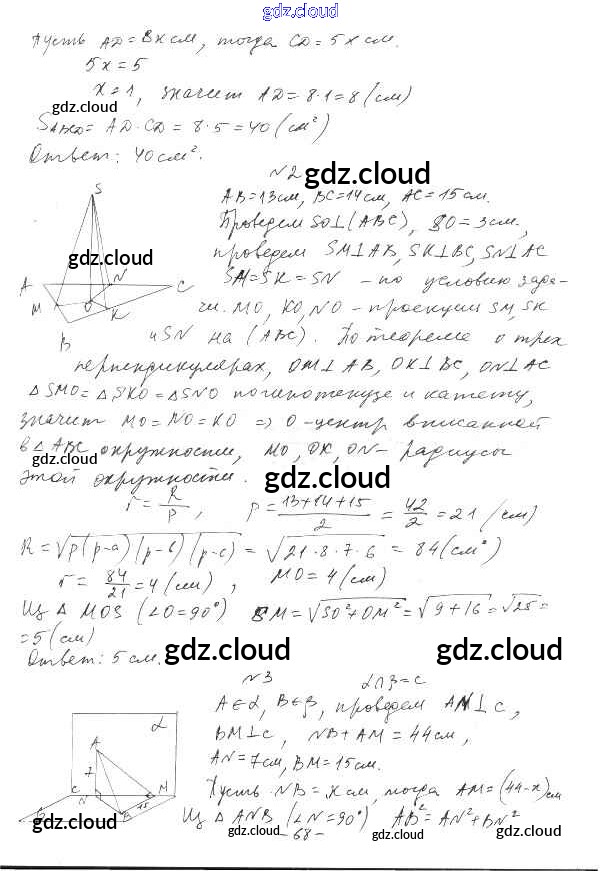 gdz.cloud
Пусть AD = 8x см, тогда CD = 5x см.
5x = 5
x = 1, значит AD = 8·1 = 8 (см)
gdz.cloud
S ABCD = AD·CD = 8·5 = 40 (см²)
Ответ: 40 см².
gdz.cloud
N2
S
AB = 13 см, BC = 14 см, AC = 15 см.
Проведем SO⊥(ABC), SO = 3 см,
gdz.cloud
проведем SM⊥AB, SK⊥BC, SN⊥AC
A M B O K N C
SM = SK = SN – по условию зада-
чи. MO, KO, NO – проекции SM, SK
и SN на (ABC). По теореме о трех
перпендикулярах, OM⊥AB, OK⊥BC, ON⊥AC
△SMO = △SKO = △SNO по гипотенузе и катету,
значит MO = NO = KO ⇒ O – центр вписанной
в △ABC окружности, MO, OK, ON – радиусы
gdz.cloud
этой окружности.
gdz.cloud
r = R/p, p = (13+14+15)/2 = 42/2 = 21 (см)
R = √p(p-a)(p-b)(p-c) = √21·8·7·6 = 84 (см²)
r = 84/21 = 4 (см), MO = 4 (см)
Из △MOS (∠O = 90°) SM = √SO²+OM² = √9+16 = √25 =
= 5 (см)
Ответ: 5 см.
gdz.cloud
gdz.cloud
N3
α∩β = c
A∈α, B∈β, проведем AN⊥c,
BM⊥c, NB + AM = 44 см,
AN = 7 см, BM = 15 см.
α A 7 C N M 15 B
Пусть NB = x см, тогда AM = (44-x) см
Из △ANB (∠N = 90°) AB² = AN² + BN²
gdz.cloud
gdz.cloud
gdz.cloud
- 68 -